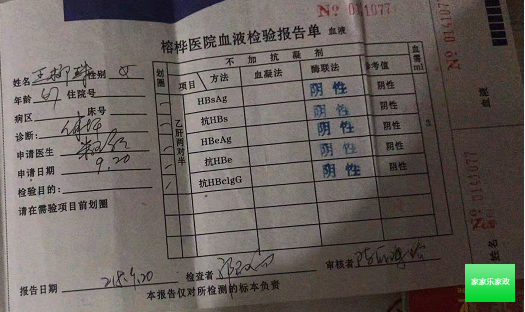 No 0141077
榕桦医院血液检验报告单 血液
姓名 性别 女
年龄 住院号
病区 床号
诊断:
申请医生
申请日期 9.20
检验目的:
请在需验项目前划圈
划圈 不加抗凝剂 血需ml
项目 方法 血凝法 酶联法 参考值
乙肝两对半
HBsAg 阴性 阴性
抗HBs 阴性 阴性
HBeAg 阴性 阴性
抗HBe 阴性 阴性
抗HBcIgG 阴性 阴性
报告日期 检查者 审核者
本报告仅对所检测的标本负责
No 0141077
血液
No 0141077
姓名
家家乐家政